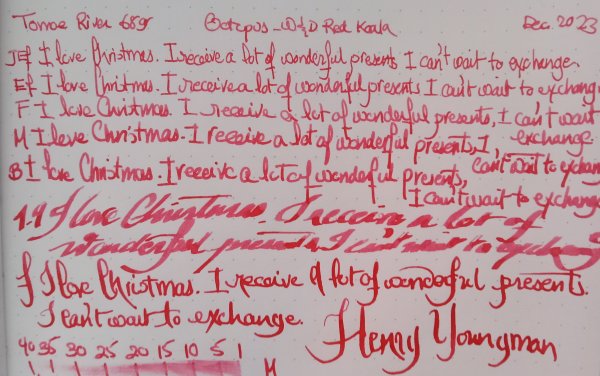 Tomoe River 68gr Octopus W&D Red Koala Dec. 2023
JEf I love Christmas. I receive a lot of wonderful presents I can't wait to exchange.
Ef I love Christmas. I receive a lot of wonderful presents I can't wait to exchang
F I love Christmas. I receive a lot of wonderful presents, I can't wait
M I love Christmas. I receive a lot of wonderful presents, I, exchange.
B I love Christmas. I receive a lot of wonderful presents, can't wait to exchan
I can't wait to exchange
1.9 I love Christmas. I receive a lot of
wonderful presents. I can't wait to exchang
f I love Christmas. I receive a lot of wonderful presents.
I can't wait to exchange.
Henry Youngman
40 35 30 25 20 15 10 5 1
M